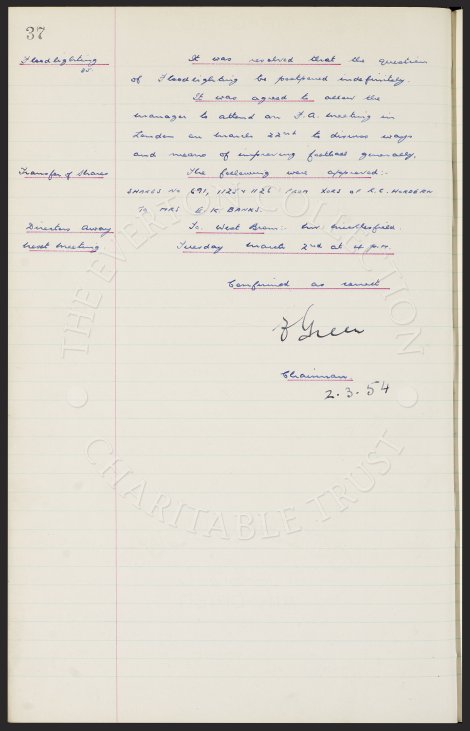 37
Floodlighting It was resolved that the question
of Floodlighting be postponed indefinitely.
It was agreed to allow the
manager to attend an F.A. meeting in
London on March 22nd to discuss ways
and means of improving football generally.
Transfer of Shares The following were approved:-
SHARES NO 691, 1125 & 1126 FROM XORS OF R.C. HORDERN
TO MRS E K BANKS.
Directors Away To West Brom:- Mr Micklesfield
Next meeting. Tuesday March 2nd at 4 p.m.
Confirmed as correct
Green
Chairman
2.3.54
THE EVERTON COLLECTION
CHARITABLE TRUST